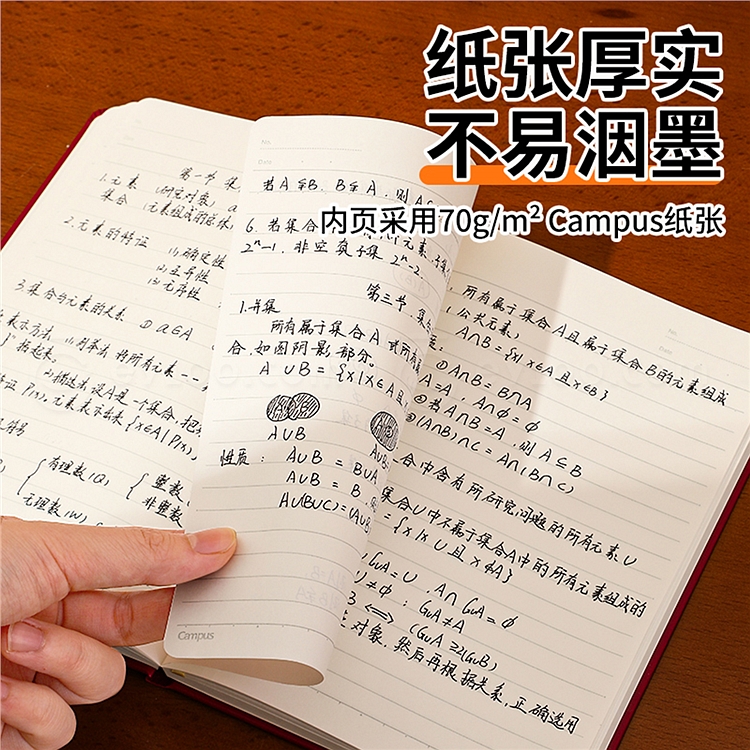 纸张厚实
不易洇墨
内页采用70g/m² Campus纸张
第一节 集
1.元素 (研究对象) a
集合 (元素组成的总体)
2.元素的特证 (1).确定性
(2).互异性
(3).无序性
3.集合与元素的关系 ① a∈A
表示方法 (1).列举法 将所有元素一一
括起来.
(2)描述法 设A是一个集合,把
P(x), 元素表示出来 {x∈A|P(x),
符号
有理数(Q) 整数
非整数
无理数
No.
Date
若A⊊B, B⊊A, 则A
6. 若集合 个元素,子集
2ⁿ-1. 非空真子集 2ⁿ-2.
第三节 集
1.并集
所有属于集合A 或所有属
合.如图阴影部分.
A∪B = {x|x∈A且
A∪B
A∪B
性质: A∪B = B∪A
A∪B = B.
A∪(B∪C)=(A∪B
Campus
No.
Date
, 所有属于集合A且属于集合B的元素组成
(公共元素)
A∩B = {x| x∈A且x∈B}
①A∩B = B∩A
=A, A∩∅=∅
若A∩B=A, 则A⊆B
(A∩B)∩C = A∩(B∩C)
一合中含有所研究问题的所有元素U
集合U中不属于集合A中的所有元素组成的
= {x|x U且x∉A}
CuA=U, A∩CuA=∅
≠∅; CuA≠A
⟺ (CuA⊇CuB)
对象.然后再根据关系,正确选用